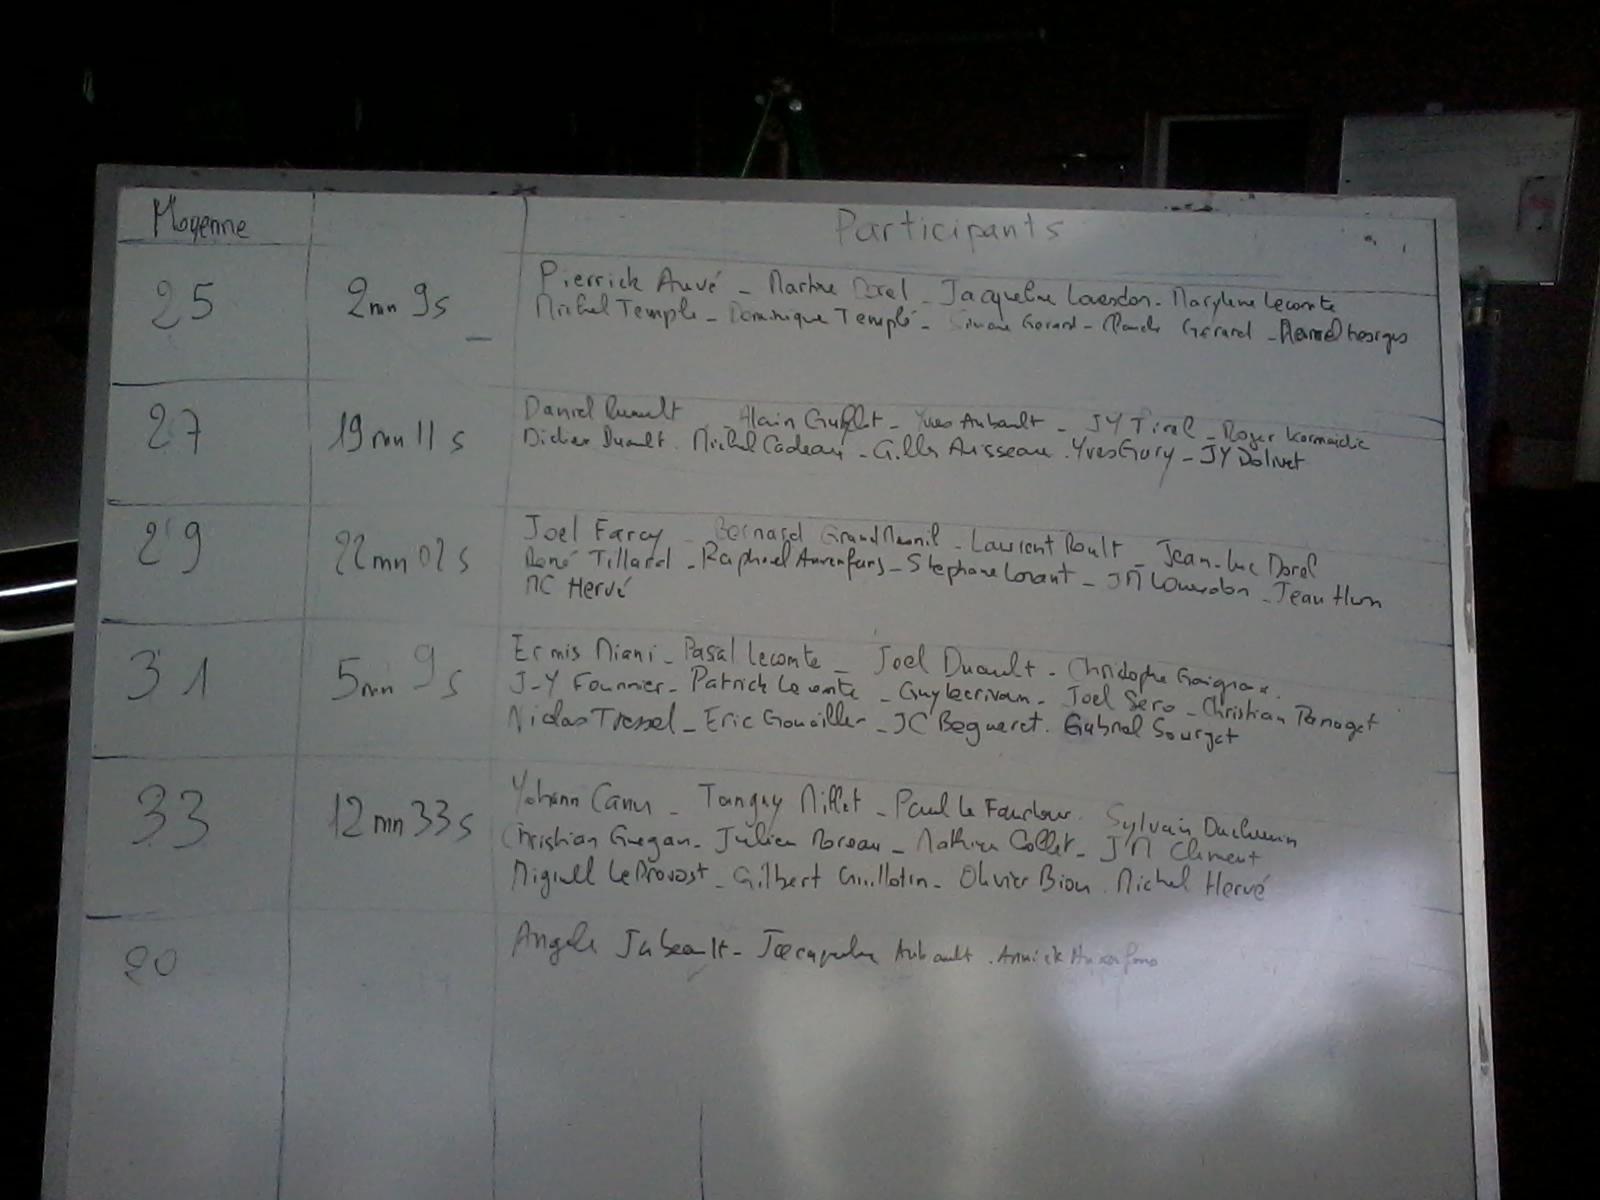 Moyenne Participants
25 2mn 9s Pierrick Auvé - Martine Dorel - Jacqueline Lourdon - Marylene Lecomte
Michel Temple - Dominique Templé - Simone Gerard - Gérard - Marcel Georges
27 19mn 11s Daniel Ruault Alain - Yves Aubault - JY Tirel - Roger
Didier Duault - Michel Cadeau - Gilles Aisseau - Yves Gory - JY Dolivet
29 22mn 02s Joel Farcy - Bernard GrandMesnil - Laurent Roult - Jean-Luc Dorel
René Tillard - Raphael - Stephane Lorant - JM Lourdon - Jean
MC Hervé
31 5mn 9s Ermis Miani - Pascal Lecomte - Joel Duault - Christophe
J-Y Fournier - Patrick Lecomte - Guy Lecrivain - Joel Sero - Christian
Nicolas Tressel - Eric Gouaillier - JC Begueret - Gabriel Sourget
33 12mn 33s Yohann Canu - Tanguy Millet - Paul Le - Sylvain Duchemin
Christian Guegan - Julien Moreau - Mathieu Collet - JM Clement
Miguell Le Provost - Gilbert Guillotin - Olivier Bion - Michel Hervé
20 Angele - Jacqueline Aubault - Annick